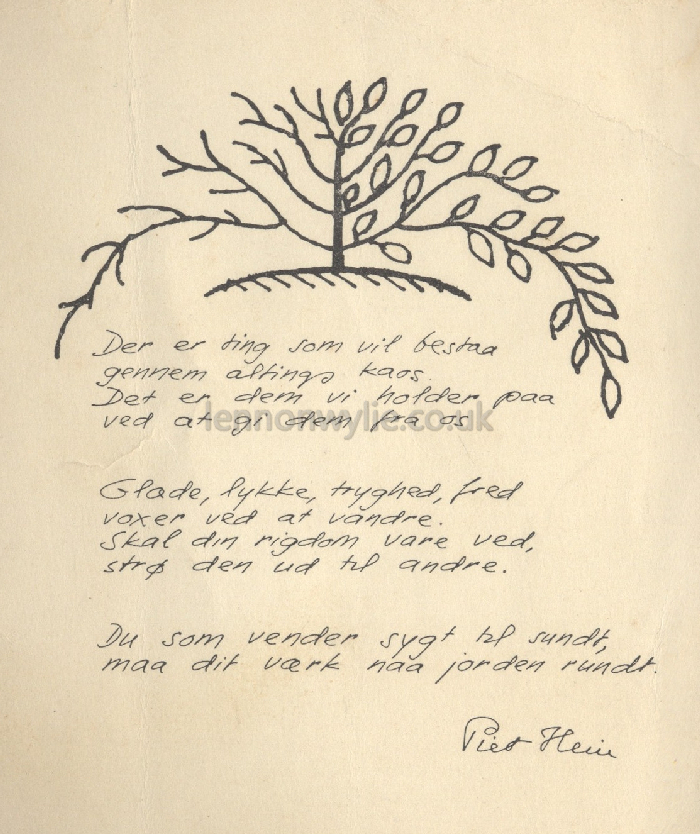 Der er ting som vil bestaa
gennem altings kaos.
Det er dem vi holder paa
ved at gi dem fra os
lennonwylie.co.uk
Glæde, lykke, tryghed, fred
voxer ved at vandre.
Skal din rigdom vare ved,
strø den ud til andre.
Du som vender sygt til sundt,
maa dit værk naa jorden rundt.
Piet Hein